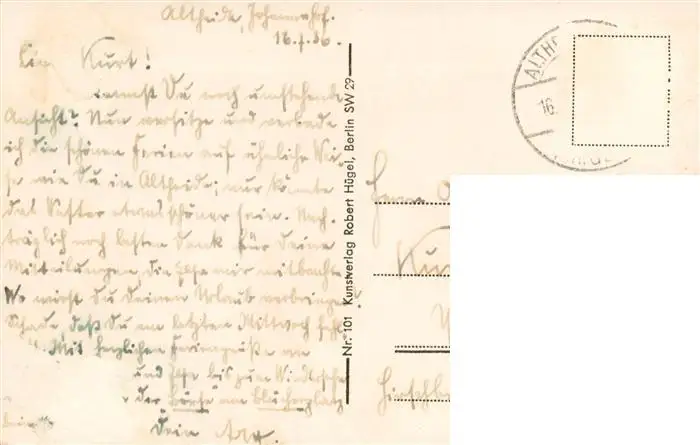 Altheide, Johannishof.
16.7.36.
Kurt!
kennst Du noch umstehende
Ansicht? Nun versitze und verbade
ich die schönen Ferien auf ähnliche Wei-
se wie Du in Altheide; nur könnte
das Wetter etwas schöner sein. Nach-
träglich noch besten Dank für Deine
Mitteilungen, die Ilse mir mitbrachte
Wo wirst Du Deinen Urlaub verbringen?
Schade, daß Du am letzten Mittwoch
Mit herzlichen Feriengrüßen an
und Ilse bis zum Wiedersehen
der Börse am Blücherplatz
Dein
Nr. 101 Kunstverlag Robert Hügel, Berlin SW 29
ALTH
16.
Herrn
Kur
Hirschbe